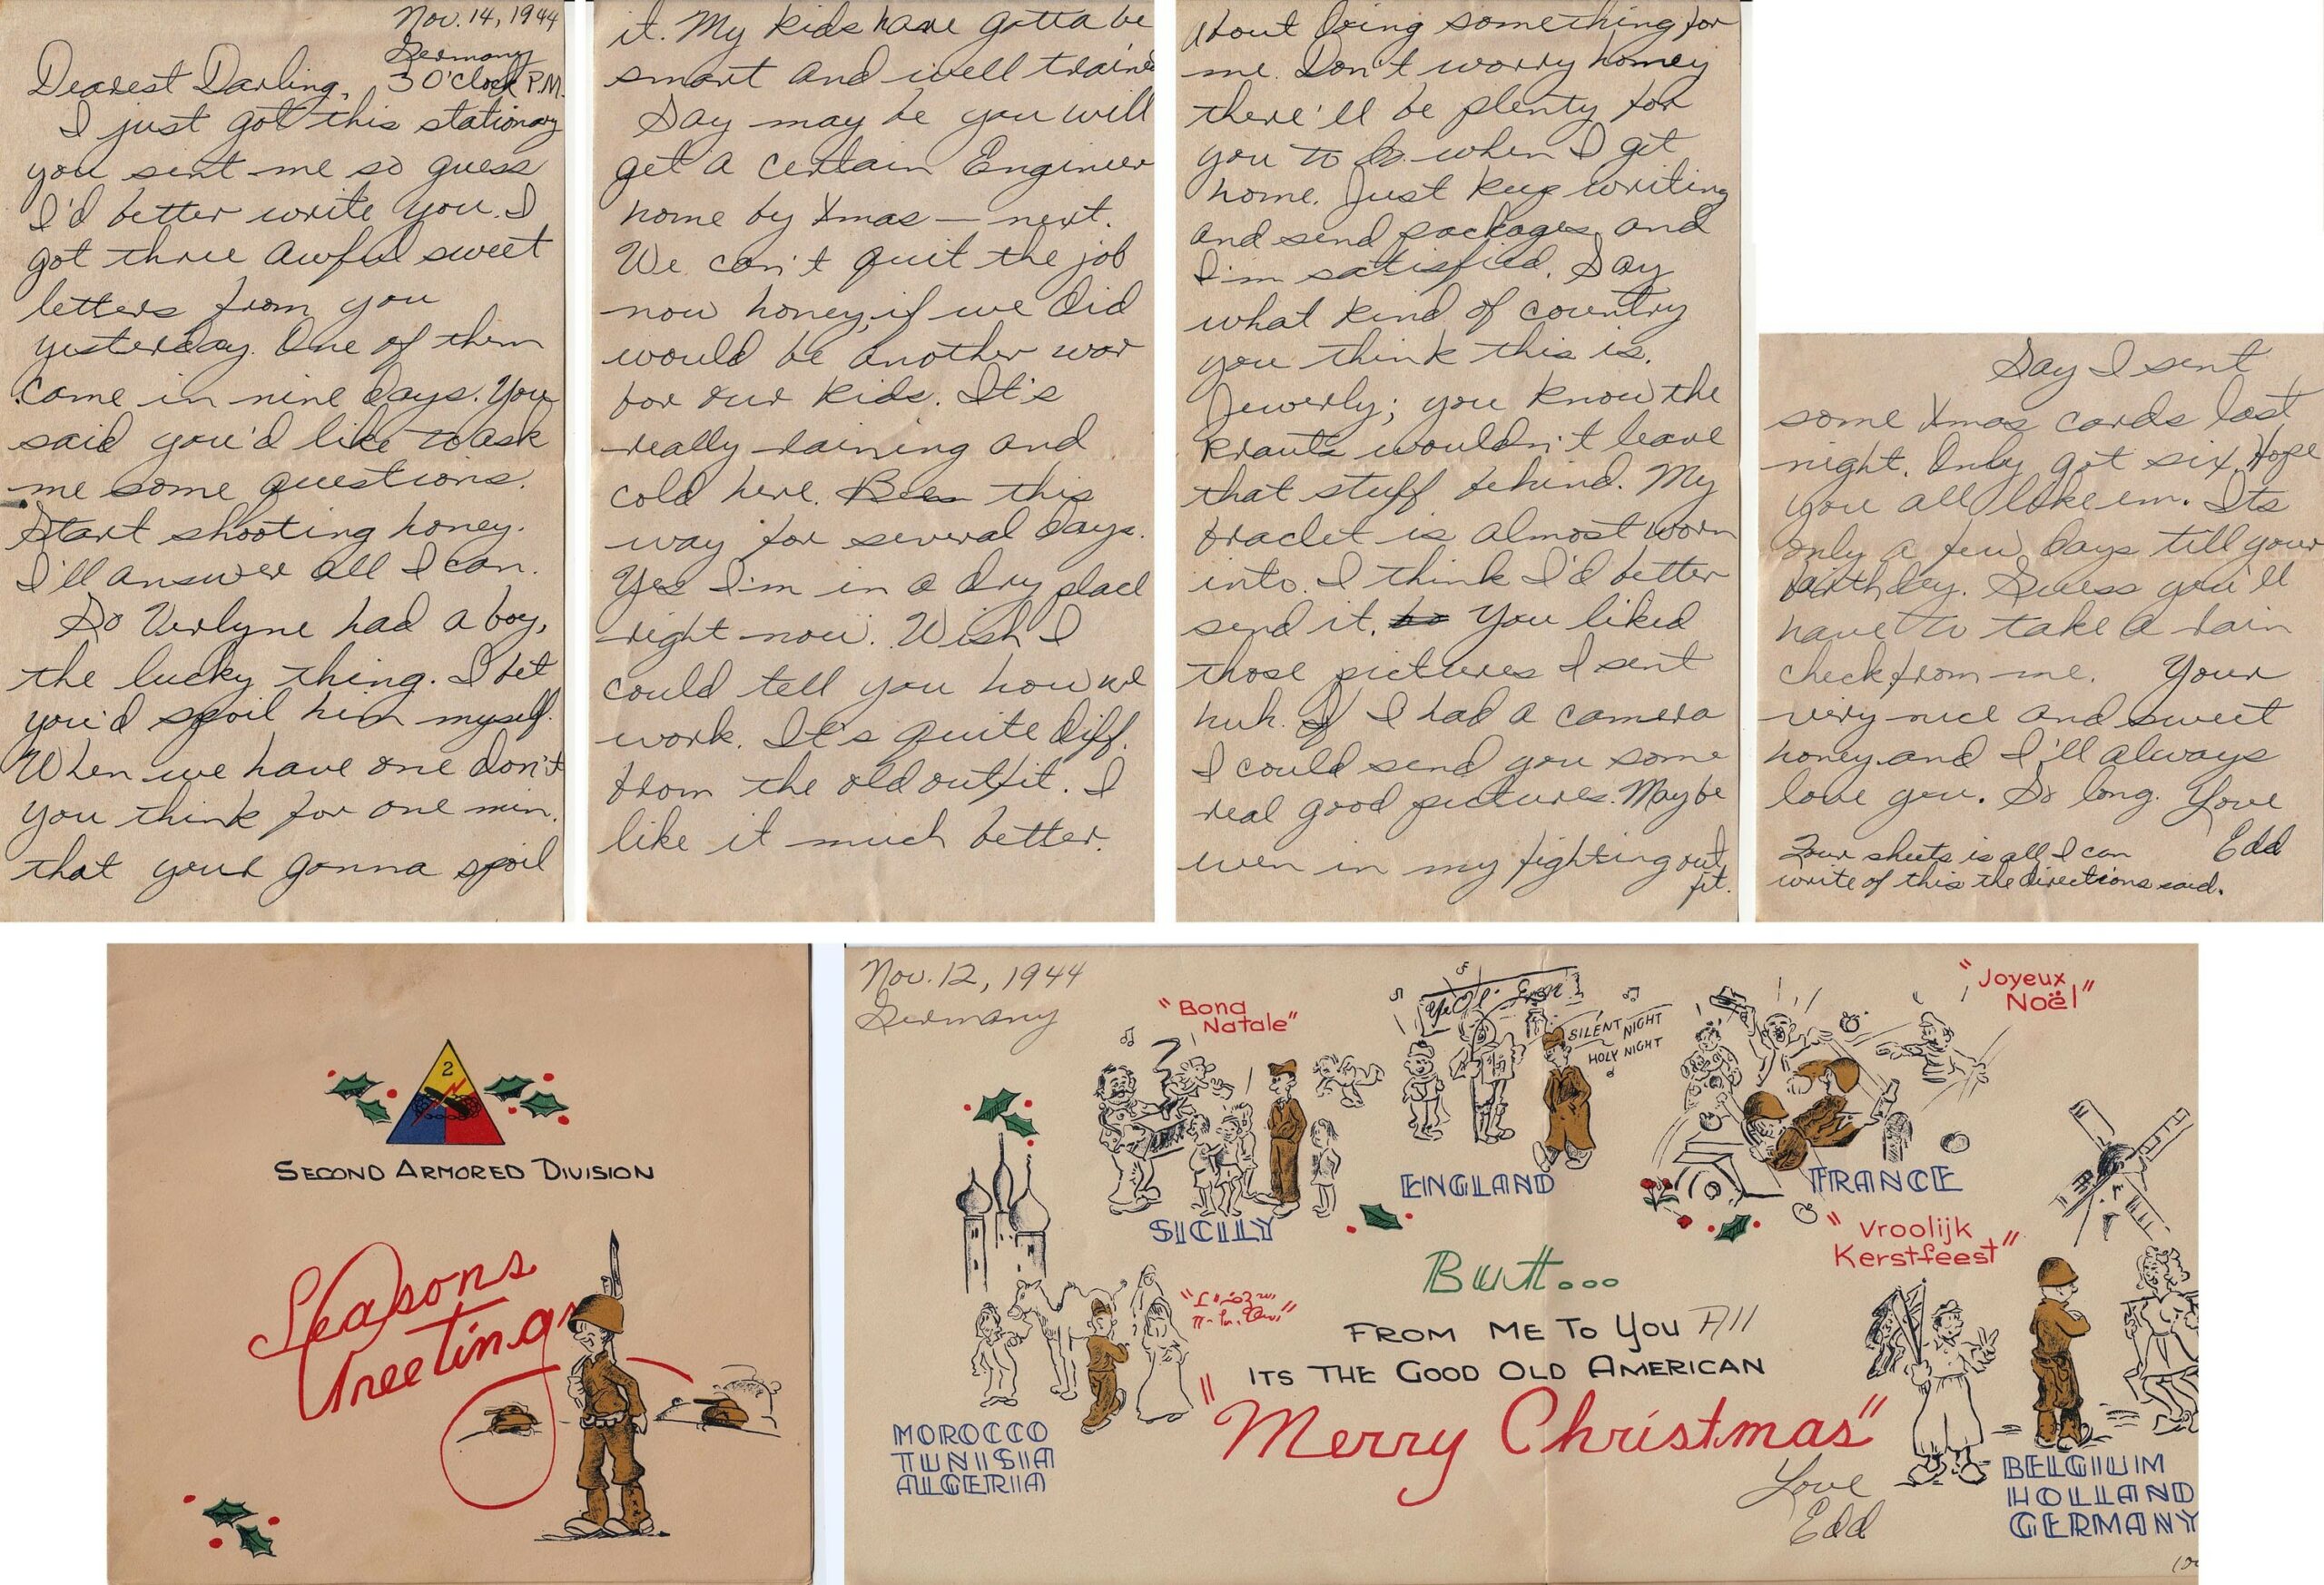 Nov. 14, 1944
Germany
3 O'Clock P.M.
Dearest Darling,
I just got this stationary
you sent me so guess
I'd better write you. I
got three awful sweet
letters from you
yesterday. One of them
came in nine days. You
said you'd like to ask
me some questions.
Start shooting honey.
I'll answer all I can.
So Verlyne had a boy,
the lucky thing. I bet
you'd spoil him myself.
When we have one don't
you think for one min.
that your gonna spoil
it. My kids have gotta be
smart and well trained
Say may be you will
get a certain Engineer
home by Xmas — next.
We can't quit the job
now honey, if we did
would be another war
for our kids. It's
really raining and
cold here. Been this
way for several days.
Yes I'm in a dry place
right now. Wish I
could tell you how we
work. It's quite diff.
from the old outfit. I
like it much better.
About doing something for
me. Don't worry honey
there'll be plenty for
you to do when I get
home. Just keep writing
and send packages and
I'm satisfied. Say
what kind of country
you think this is.
Jewerly; you know the
krauts wouldn't leave
that stuff behind. My
braclet is almost worn
into. I think I'd better
send it. to You liked
those pictures I sent
huh. If I had a camera
I could send you some
real good pictures. Maybe
even in my fighting out
fit.
Say I sent
some Xmas cards last
night. Only got six. Hope
you all like em. Its
only a few days till your
birthday. Guess you'll
have to take a rain
check from me. Your
very nice and sweet
honey and I'll always
love you. So long. Love
Edd
Four sheets is all I can
write of this the directions said.
2
SECOND ARMORED DIVISION
Seasons
Greetings
Nov. 12, 1944
Germany
"Bona
Natale"
Ye Ol'
SILENT NIGHT
HOLY NIGHT
"Joyeux
Noël"
SICILY
ENGLAND
FRANCE
"Vroolijk
Kerstfeest"
But...
FROM ME TO YOU All
ITS THE GOOD OLD AMERICAN
"Merry Christmas"
MOROCCO
TUNISIA
ALGERIA
Love
Edd
BELGIUM
HOLLAND
GERMANY